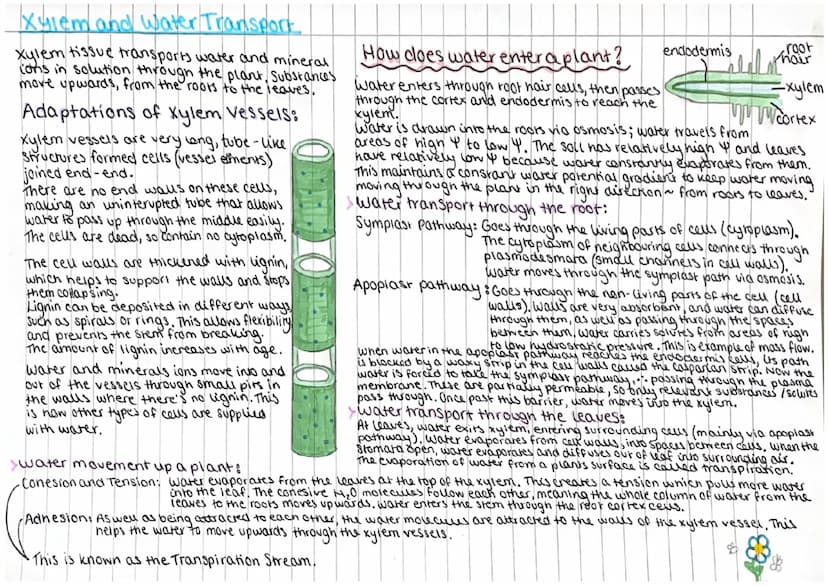 Xylem and Water Transport
Xylem tissue transports water and mineral
ions in solution through the plant. Substances
move upwards, from the roots to the leaves.
Adaptations of Xylem Vessels:
Xylem vessels are very long, tube-like
structures formed cells (vessel elments)
joined end-end.
There are no end walls on these cells,
making an uninterupted tube that allows
water to pass up through the middle easily.
The cells are dead, so contain no cytoplasm.
The cell walls are thickened with lignin,
which helps to support the walls and stops
them collapsing.
Lignin can be deposited in different ways,
such as spirals or rings. This allows flexibility
and prevents the stem from breaking.
The amount of lignin increases with age.
Water and minerals ions move into and
out of the vessels through small pits in
the walls where there's no lignin. This
is how other types of cells are supplied
with water.
How does water enter a plant?
endodermis
root
hair
xylem
cortex
Water enters through root hair cells, then passes
through the cortex and endodermis to reach the
xylem.
Water is drawn into the roots via osmosis; water travels from
areas of high Ψ to low Ψ. The soil has relatively high Ψ and leaves
have relatively low Ψ because water constantly evaporates from them.
This maintains a constant water potential gradient to keep water moving
moving through the plant in the right direction ~ from roots to leaves.
> Water transport through the root:
Symplast Pathway: Goes through the living parts of cells (cytoplasm).
The cytoplasm of neighbouring cells connects through
plasmodesmata (small channels in cell walls).
Water moves through the symplast path via osmosis.
Apoplast pathway: Goes through the non-living parts of the cell (cell
walls). Walls are very absorbant, and water can diffuse
through them, as well as passing through the spaces
between them. Water carries solutes from areas of high
to low hydrostatic pressure. This is example of mass flow.
When water in the apoplast pathway reaches the endodermis cells, its path
is blocked by a waxy strip in the cell walls called the casparian strip. Now the
water is forced to take the symplast pathway, ∴ passing through the plasma
membrane. These are partially permeable, so only relevant substances/solutes
pass through. Once past this barrier, water moves into the xylem.
> Water transport through the leaves:
At leaves, water exits xylem, entering surrounding cells (mainly via apoplast
pathway). Water evaporates from cell walls, into spaces between cells. When the
stomata open, water evaporates and diffuses out of leaf into surrounding air.
The evaporation of water from a plants surface is called transpiration.
> Water movement up a plant:
Cohesion and Tension: Water evaporates from the leaves at the top of the xylem. This creates a tension which pulls more water
into the leaf. The cohesive H₂O molecules follow each other, meaning the whole column of water from the
leaves to the roots moves upwards. Water enters the stem through the root cortex cells.
Adhesion: As well as being attracted to each other, the water molecules are attracted to the walls of the xylem vessel. This
helps the water to move upwards through the xylem vessels.
This is known as the Transpiration Stream.